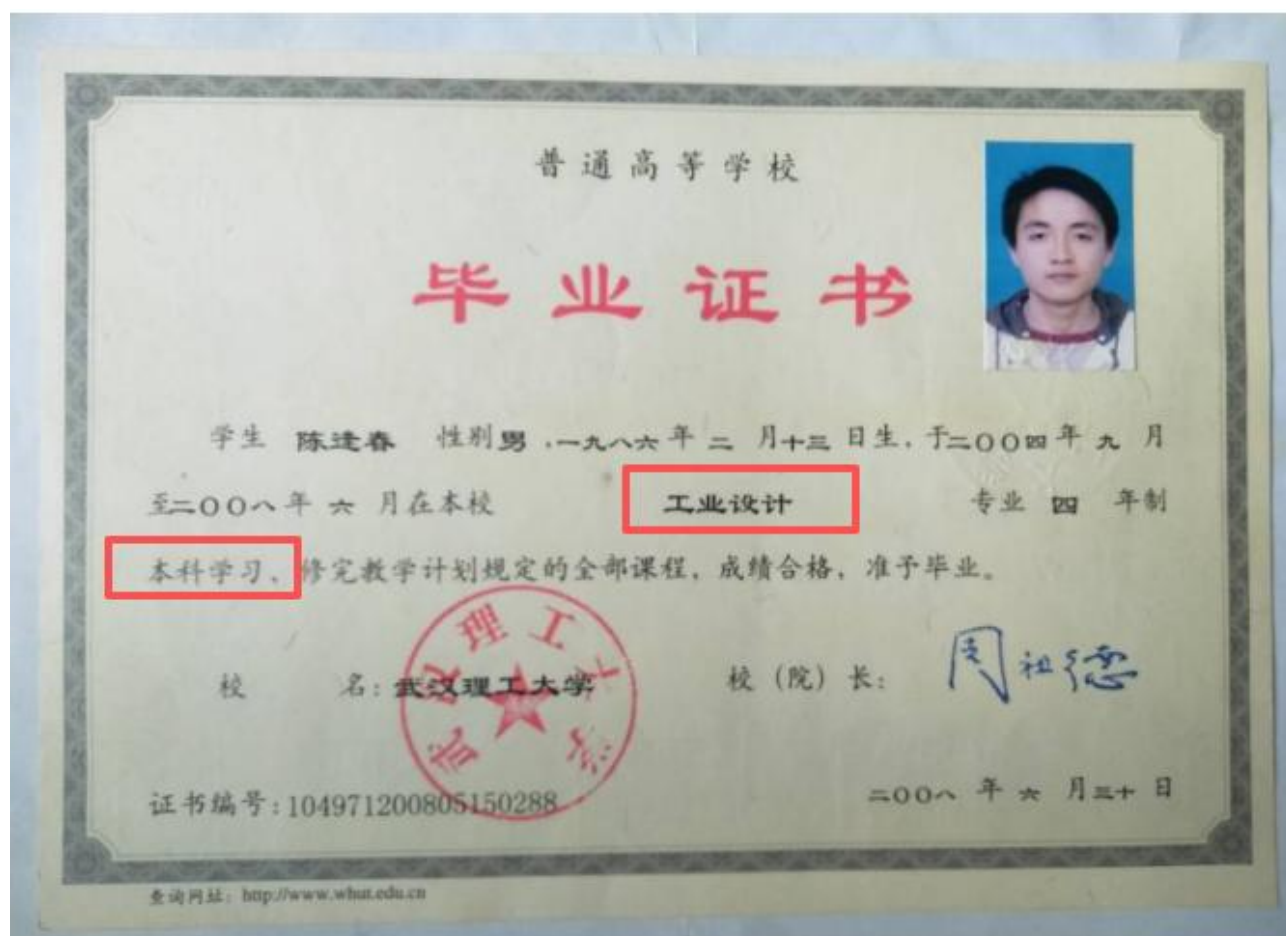 普通高等学校
毕业证书
学生 陈逢春 性别 男 ,一九八六 年 二 月 十三 日生, 于二〇〇四 年 九 月
至二〇〇八 年 六 月在本校 工业设计 专业 四 年制
本科学习、修完教学计划规定的全部课程, 成绩合格, 准予毕业。
校 名: 武汉理工大学 校(院)长: 周祖德
武汉理工大学
证书编号: 104971200805150288 二〇〇八 年 六 月 三十 日
查询网址: http://www.whut.edu.cn